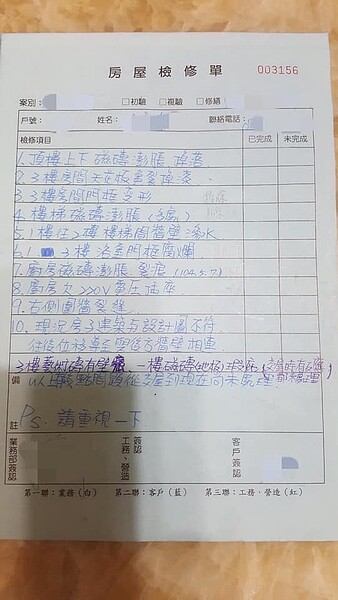 房屋檢修單
003156
案別： □初驗 □複驗 □修繕
戶號： 姓名： 聯絡電話：
檢修項目 已完成 未完成
1. 頂樓上下磁磚澎脹掉落
2. 3樓房間天花板龜裂掉漆
3. 3樓房間門框变形
4. 樓梯磁磚澎脹
5. 1樓往2樓樓梯間牆壁滲水
6. 1 3樓浴室門框腐爛
7. 廚房磁磚澎脹 裂痕 (104.5.7)
8. 廚房欠220V電圧插座
9. 右側圍牆裂縫
10. 現況房子業築与設計圖不符
3樓 磁磚有壁癌 一樓磁磚(地板)
以上 問題從交屋到現在尚未處理
備註
Ps. 請重視一下
業務部簽認
工務、營造簽認
客戶簽認
第一聯：業務(白) 第二聯：客戶(藍) 第三聯：工務、營造(紅)